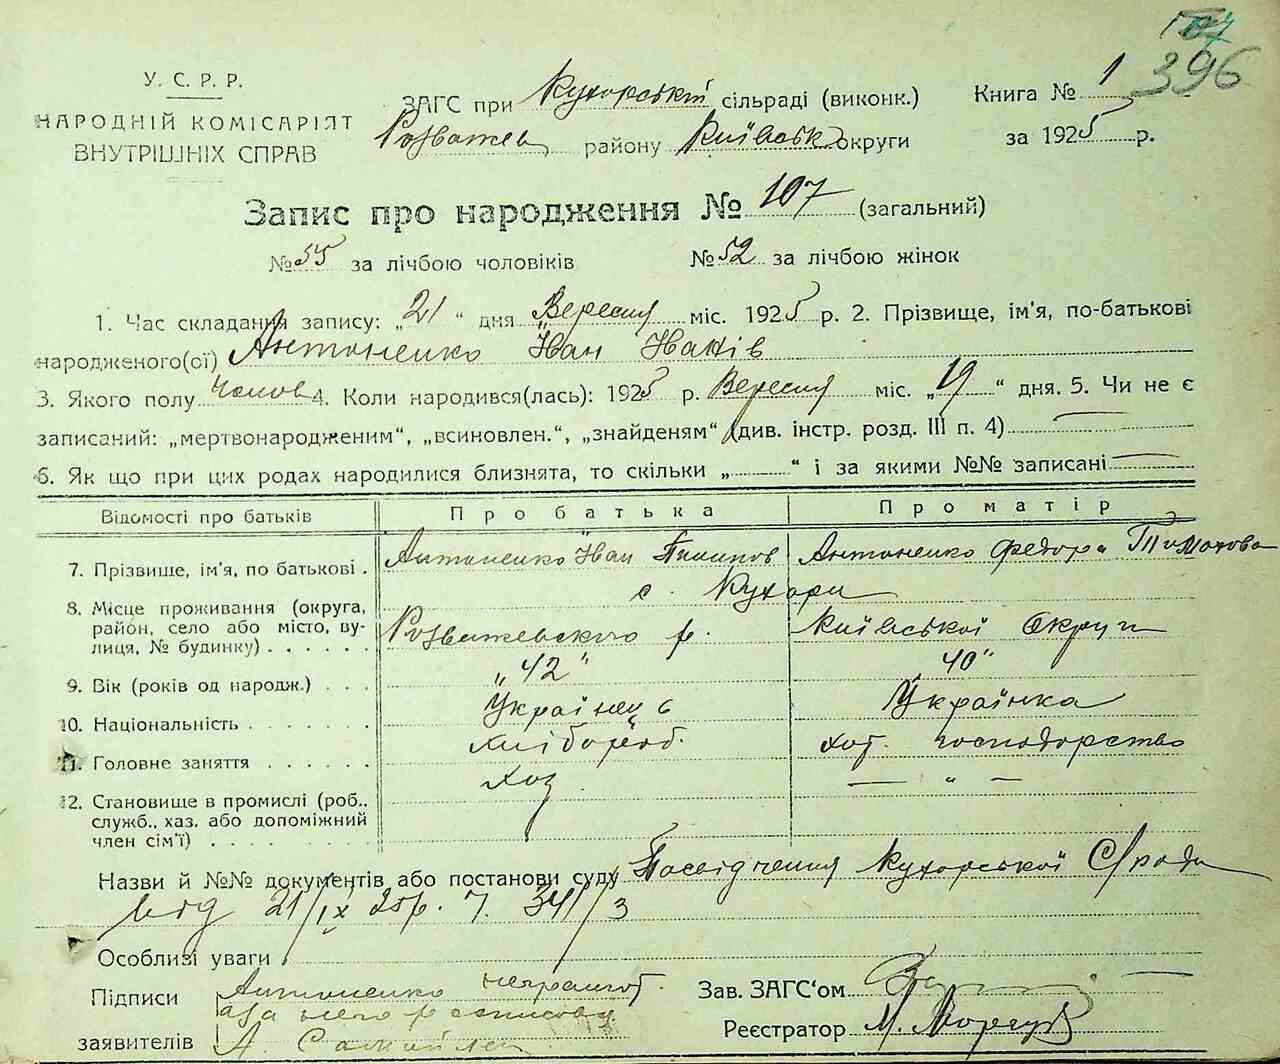 396
У. С. Р. Р.
НАРОДНІЙ КОМІСАРІЯТ
ВНУТРІШНІХ СПРАВ
ЗАГС при Кухорській сільраді (виконк.)
Розважев району Київськ округи
Книга № 1
за 1925 р.
Запис про народження № 107 (загальний)
№ 55 за лічбою чоловіків № 52 за лічбою жінок
1. Час складання запису: „21“ дня Вересня міс. 1925 р. 2. Прізвище, ім'я, по-батькові
народженого(сі) Антоненко Іван Іванів
3. Якого полу чолов 4. Коли народився(лась): 1925 р. Вересня міс. „19“ дня. 5. Чи не є
записаний: „мертвонародженим“, „всиновлен.“, „знайденям“ (див. інстр. розд. III п. 4)
6. Як що при цих родах народилися близнята, то скільки „ “ і за якими №№ записані
Відомості про батьків Про батька Про матір
7. Прізвище, ім'я, по батькові . Антоненко Іван Пилипов Антоненко Федора
8. Місце проживання (округа, с. Кухари
район, село або місто, ву- Розважевского р. Київської Округи
лиця, № будинку) . . . . . .
9. Вік (років од народж.) . . . „42“ „40“
10. Національність . . . . . . . Українець Українка
11. Головне заняття . . . . . . хлібороб. хот. господорство
12. Становище в промислі (роб., Хоз — „ —
служб., хаз. або допоміжний
член сім'ї) . . . . . . . . .
Назви й №№ документів або постанови суду Посвідчення Кухорської С/ради
від 21/IX 25р. 341/3
Особливі уваги
Підписи Антоненко неграмот.
а за него росписову
заявителів А.
Зав. ЗАГС'ом
Реєстратор М.